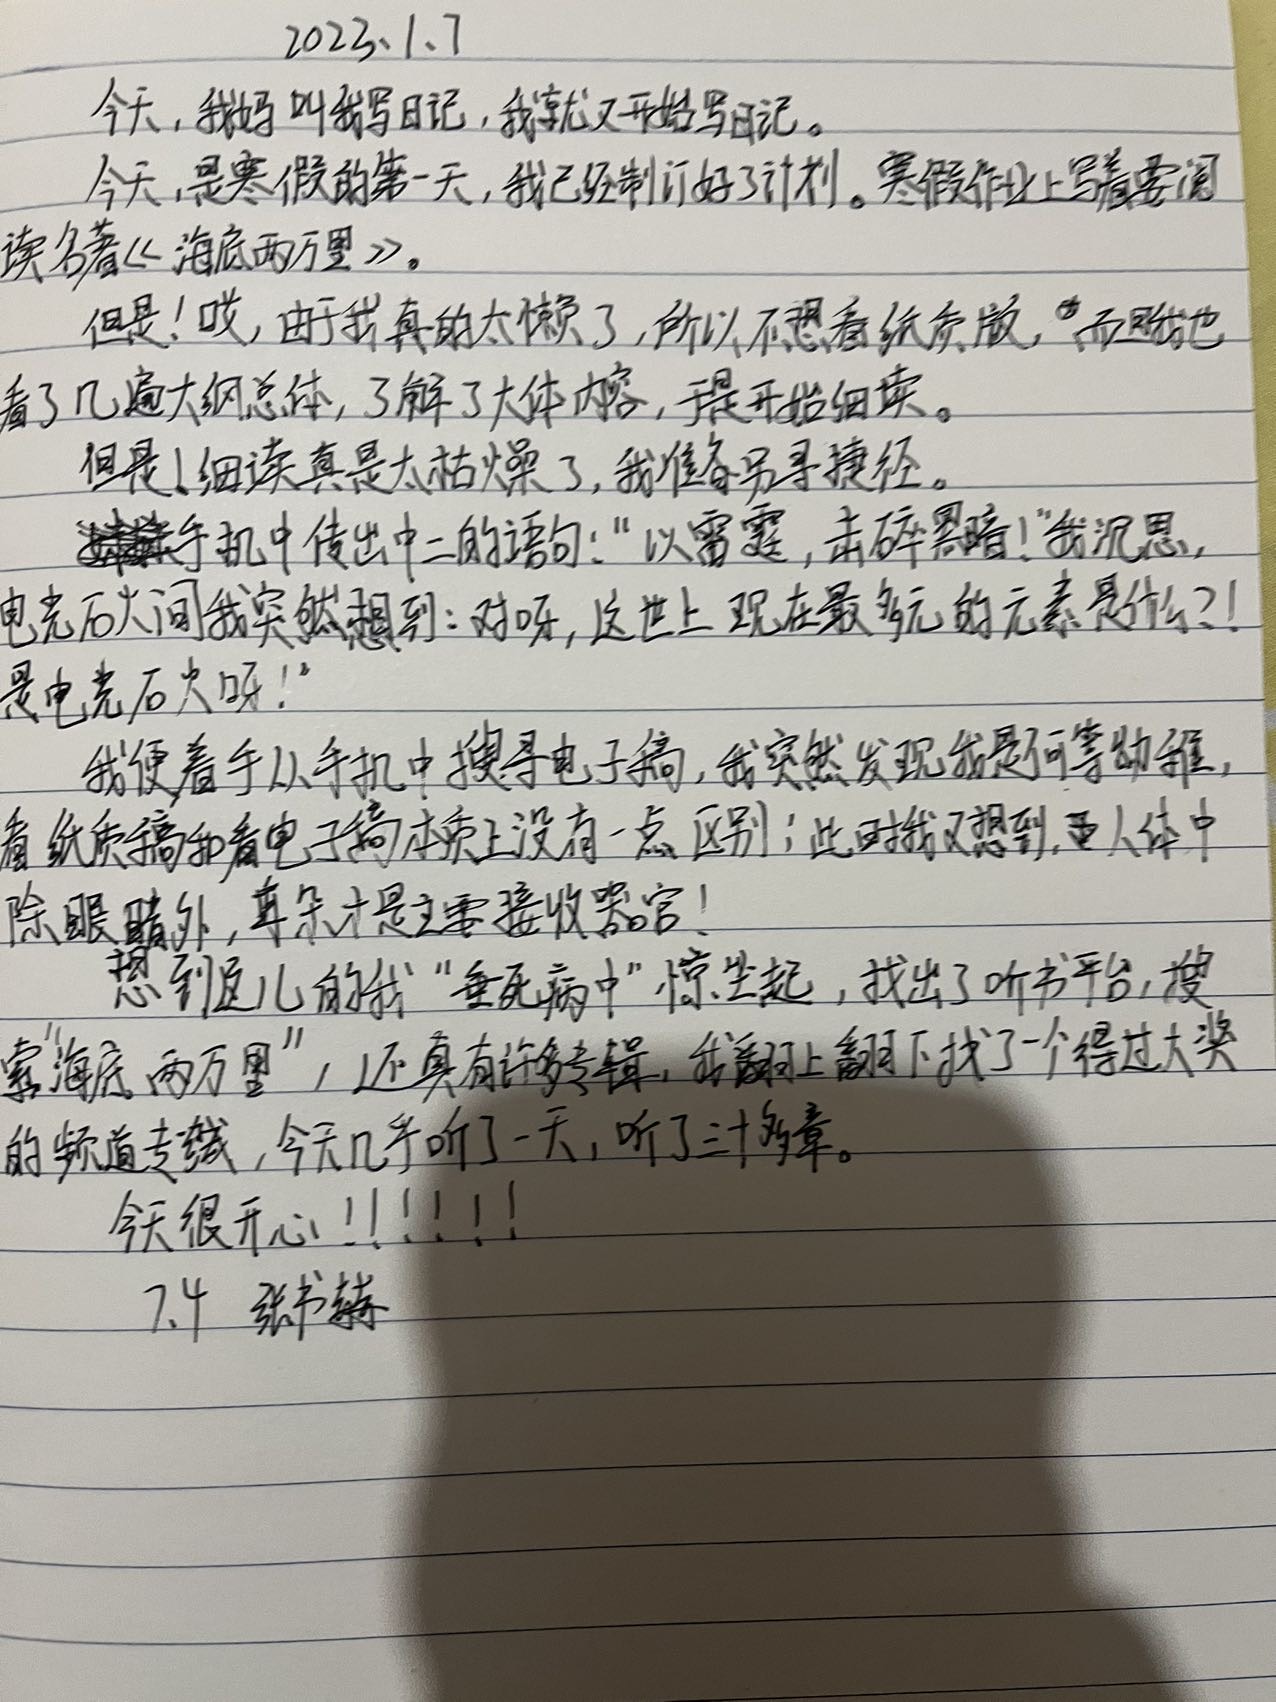 2023、1、7
今天,我妈叫我写日记,我就又开始写日记。
今天,是寒假的第一天,我已经制订好了计划。寒假作业上写着要阅
读名著《海底两万里》。
但是!哎,由于我真的太懒了,所以不想看纸质版,而且我也
看了几遍大纲总体,了解了大体内容,于是开始细读。
但是!细读真是太枯燥了,我准备另寻捷径。
手机中传出中二的语句:“以雷霆,击碎黑暗!”我沉思,
电光石火间我突然想到:对呀,这世上现在最多元的元素是什么?!
是电光石火呀!”
我便着手从手机中搜寻电子稿,我突然发现我是何等幼稚,
看纸质稿和看电子稿本质上没有一点区别;此时我又想到,人体中
除眼睛外,耳朵才是主要接收器官!
想到这儿的我“垂死病中”惊坐起,找出了听书平台,搜
索“海底两万里”,还真有许多专辑,我翻上翻下找了一个得过大奖
的频道专辑,今天几乎听了一天,听了三十多章。
今天很开心!!!!!!
7.4 张书